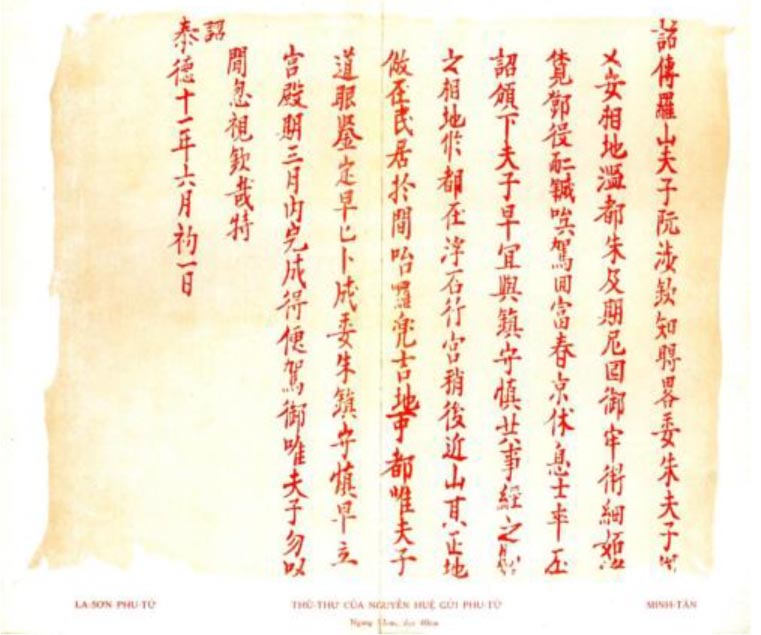 詔傳羅山夫子阮浹欽知𣋚畧委朱夫子
乂安相地濫都朱及期尼回御
鄧役 吏駕回富春京休息士卒
詔頒下夫子早宜與鎮守慎共事經之營
之相地作都在浮石行宮稍後近山 正地
倣在民居於間 羅 吉地中都唯夫子
道眼鑒定早卜成委朱鎮守慎早立
宮殿期三月內完成得便駕御唯夫子勿以
閒忽視欽哉特
詔
泰德十一年六月初一日
LA-SƠN PHU-TỬ
THỦ-THƯ CỦA NGUYỄN HUỆ GỬI PHU-TỬ
MINH-TÂN
Ngang